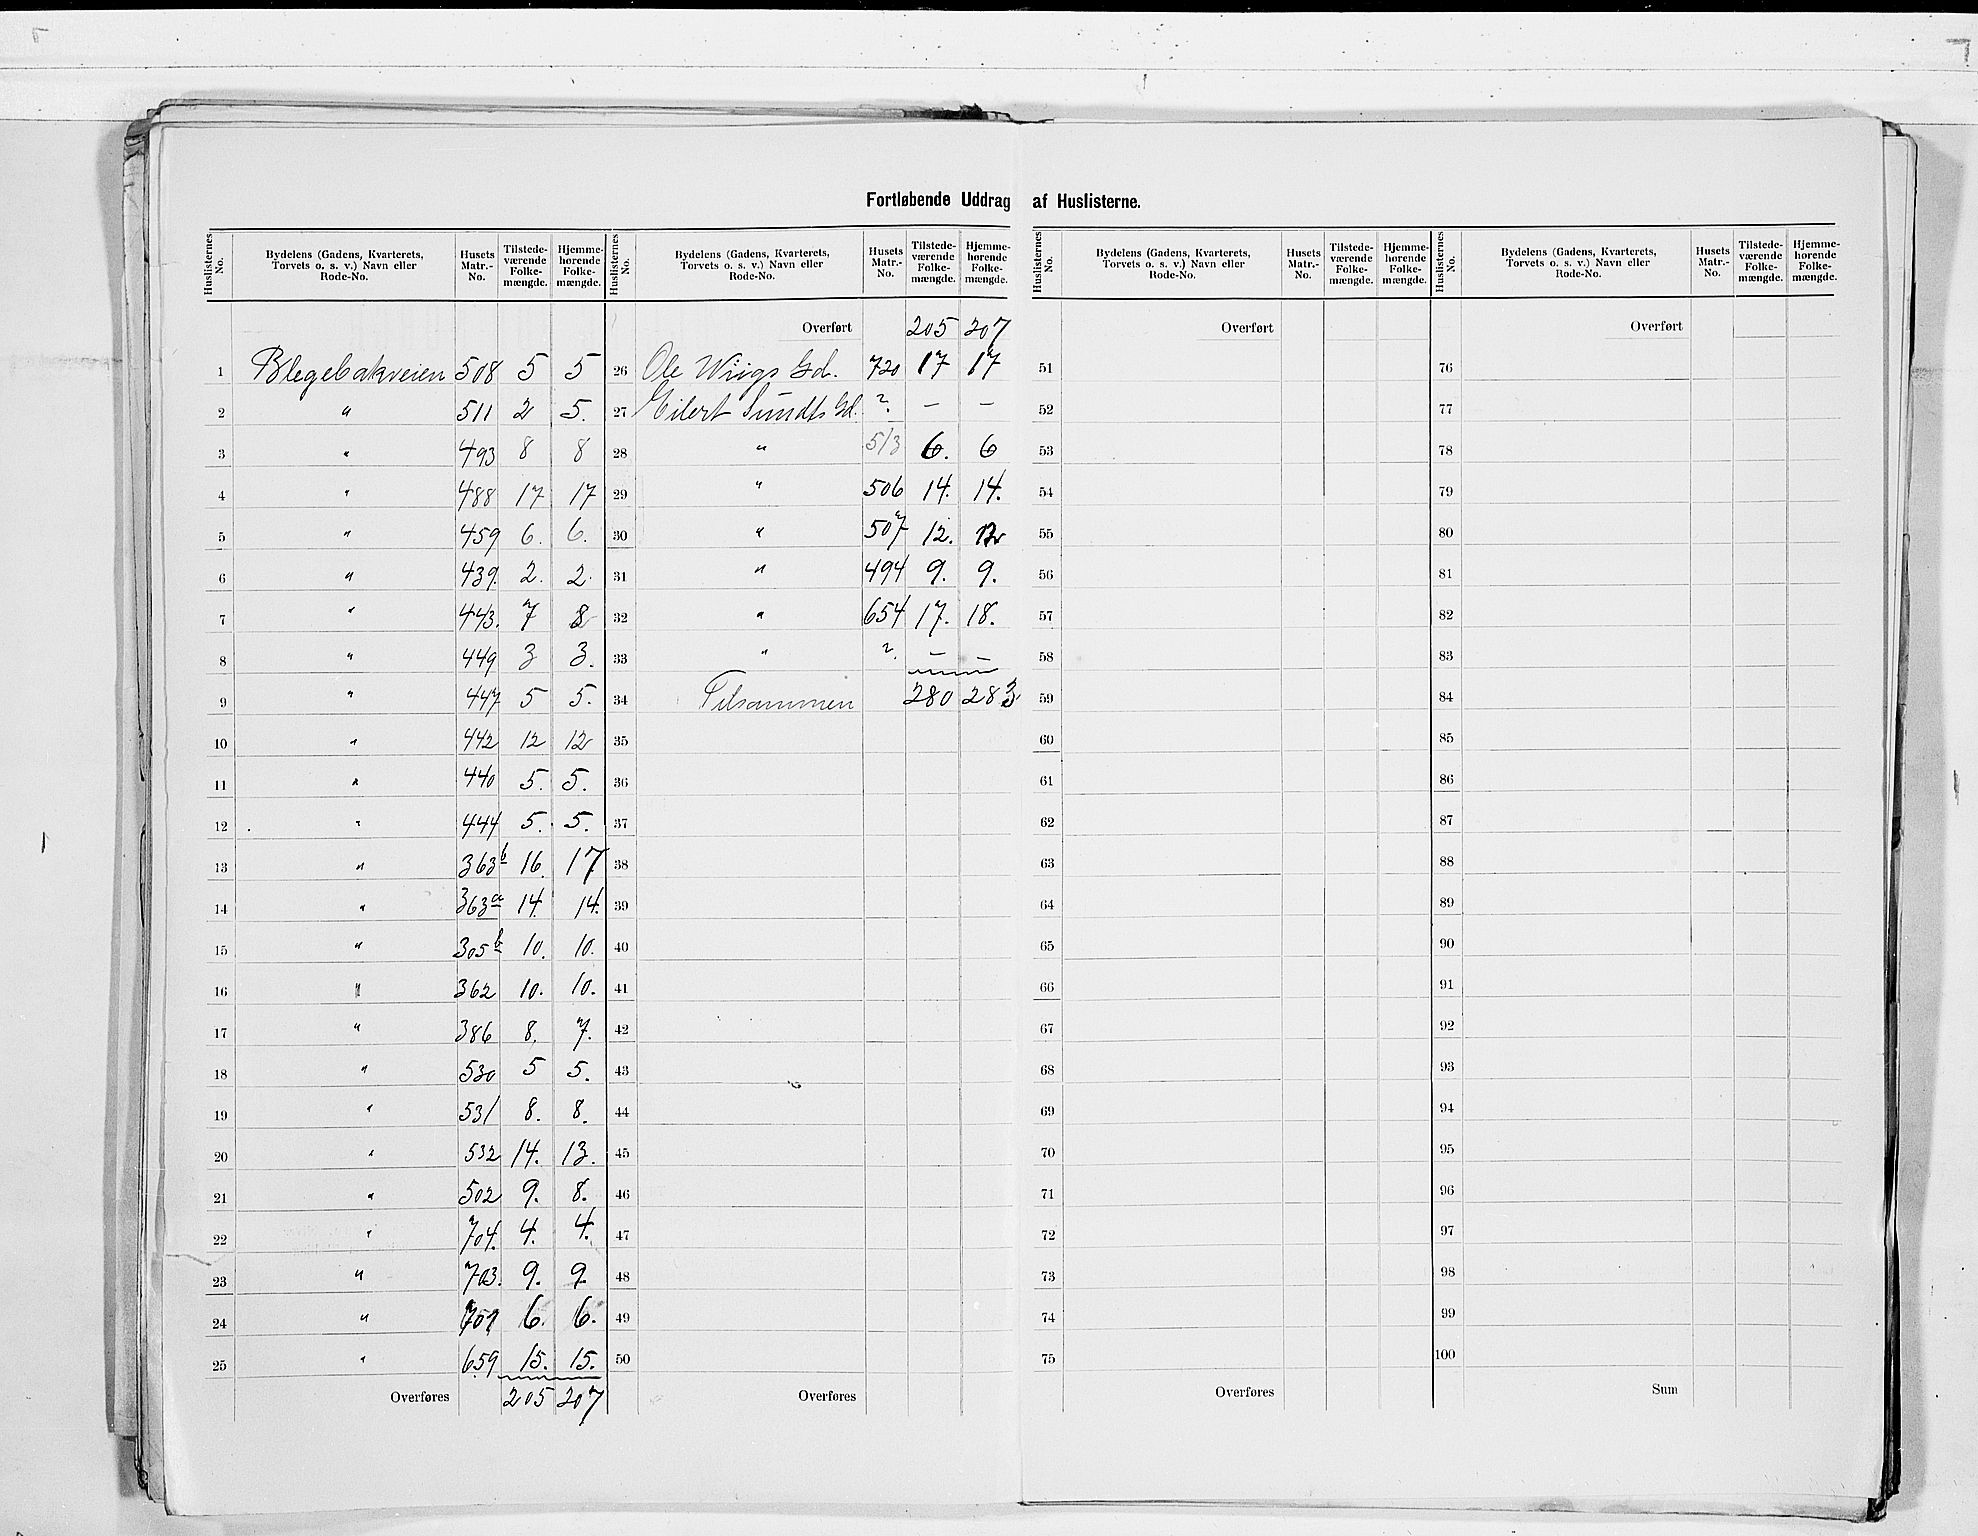 Fortløbende Uddrag af Huslisterne.
Huslisternes No. | Bydelens (Gadens, Kvarterets, Torvets o. s. v.) Navn eller Rode-No. | Husets Matr.-No. | Tilstede-værende Folke-mængde. | Hjemme-hørende Folke-mængde.
1 Blegebakveien 508 5 5
2 " 511 2 5.
3 " 493 8 8
4 " 488 17 17
5 " 459 6. 6.
6 " 439. 2. 2.
7 " 443. 7 8
8 " 449 3 3.
9 " 447 5 5.
10 " 442 12 12
11 " 440 5. 5.
12 " 444 5. 5.
13 " 363b 16. 17
14 " 363a 14. 14.
15 " 305b 10. 10.
16 " 362 10. 10.
17 " 386 8. 7.
18 " 530 5 5.
19 " 531 8. 8.
20 " 532 14. 13.
21 " 502 9. 8.
22 " 704. 4. 4.
23 " 703. 9. 9
24 " 6. 6.
25 " 659 15. 15.
Overføres 205 207
Huslisternes No. | Bydelens (Gadens, Kvarterets, Torvets o. s. v.) Navn eller Rode-No. | Husets Matr.-No. | Tilstede-værende Folke-mængde. | Hjemme-hørende Folke-mængde.
Overført 205 207
26 Ole Wiigs Gd. 720 17 17
27 Eilert Sundts Gd. ?. – –
28 " 513 6. 6
29 " 506 14. 14.
30 " 507 12. 12
31 " 494 9. 9.
32 " 654 17. 18.
33 " ?. – –
34 Tilsammen 280 283
35
36
37
38
39
40
41
42
43
44
45
46
47
48
49
50
Overføres
Huslisternes No. | Bydelens (Gadens, Kvarterets, Torvets o. s. v.) Navn eller Rode-No. | Husets Matr.-No. | Tilstede-værende Folke-mængde. | Hjemme-hørende Folke-mængde.
Overført
51
52
53
54
55
56
57
58
59
60
61
62
63
64
65
66
67
68
69
70
71
72
73
74
75
Overføres
Huslisternes No. | Bydelens (Gadens, Kvarterets, Torvets o. s. v.) Navn eller Rode-No. | Husets Matr.-No. | Tilstede-værende Folke-mængde. | Hjemme-hørende Folke-mængde.
Overført
76
77
78
79
80
81
82
83
84
85
86
87
88
89
90
91
92
93
94
95
96
97
98
99
100
Sum